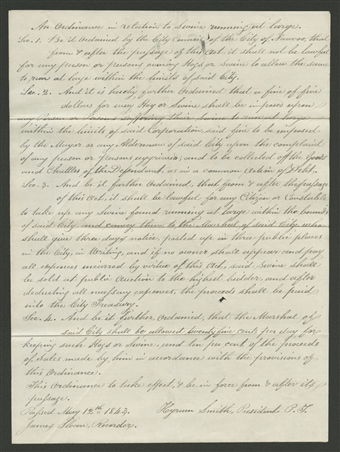 An Ordinance in relation to Swine running at large.
Sec. 1. Be it Ordained by the City Council of the City of Nauvoo, that
from & after the passage of this act it shall not be lawful
for any person or persons owning Hogs or Swine to allow the same
to run at large within the limits of said City.
Sec. 2. And it is hereby further Ordained, that a fine of five
dollars for every Hog or Swine shall be imposed upon
any Person or Persons suffering their Swine to run at large
within the limits of said Corporation said fine to be imposed
by the Mayor or any Alderman of said City upon the complaint
of any person or persons aggrieved, and to be collected off the Goods
and Chattles of the Defendant, as in a common Action of Debt.
Sec. 3. And be it further Ordained, that from & after the passage
of this Act, it shall be lawful for any Citizen or Constable
to take up any Swine found running at large within the bounds
of said City, and convey them to the Marshal of said City who
shall give three days notice, posted up in three public places
in the City, in Writing, and if no owner shall appear and pay
all expenses incurred by virtue of this Act, said Swine shall
be sold at public Auction to the highest bidder, and after
deducting all necessary expenses, the proceeds shall be paid
into the City Treasury.
Sec. 4. And be it further Ordained, that the Marshal of
said City shall be allowed twenty five cents per day for
keeping such Hogs or Swine, and ten per cent of the proceeds
of Sales made by him in accordance with the provisions of
this Ordinance.
This Ordinance to take effect, & be in force from & after its
passage.
Passed, May 12th 1842. Hyrum Smith, President P. T.
James Sloan, Recorder.